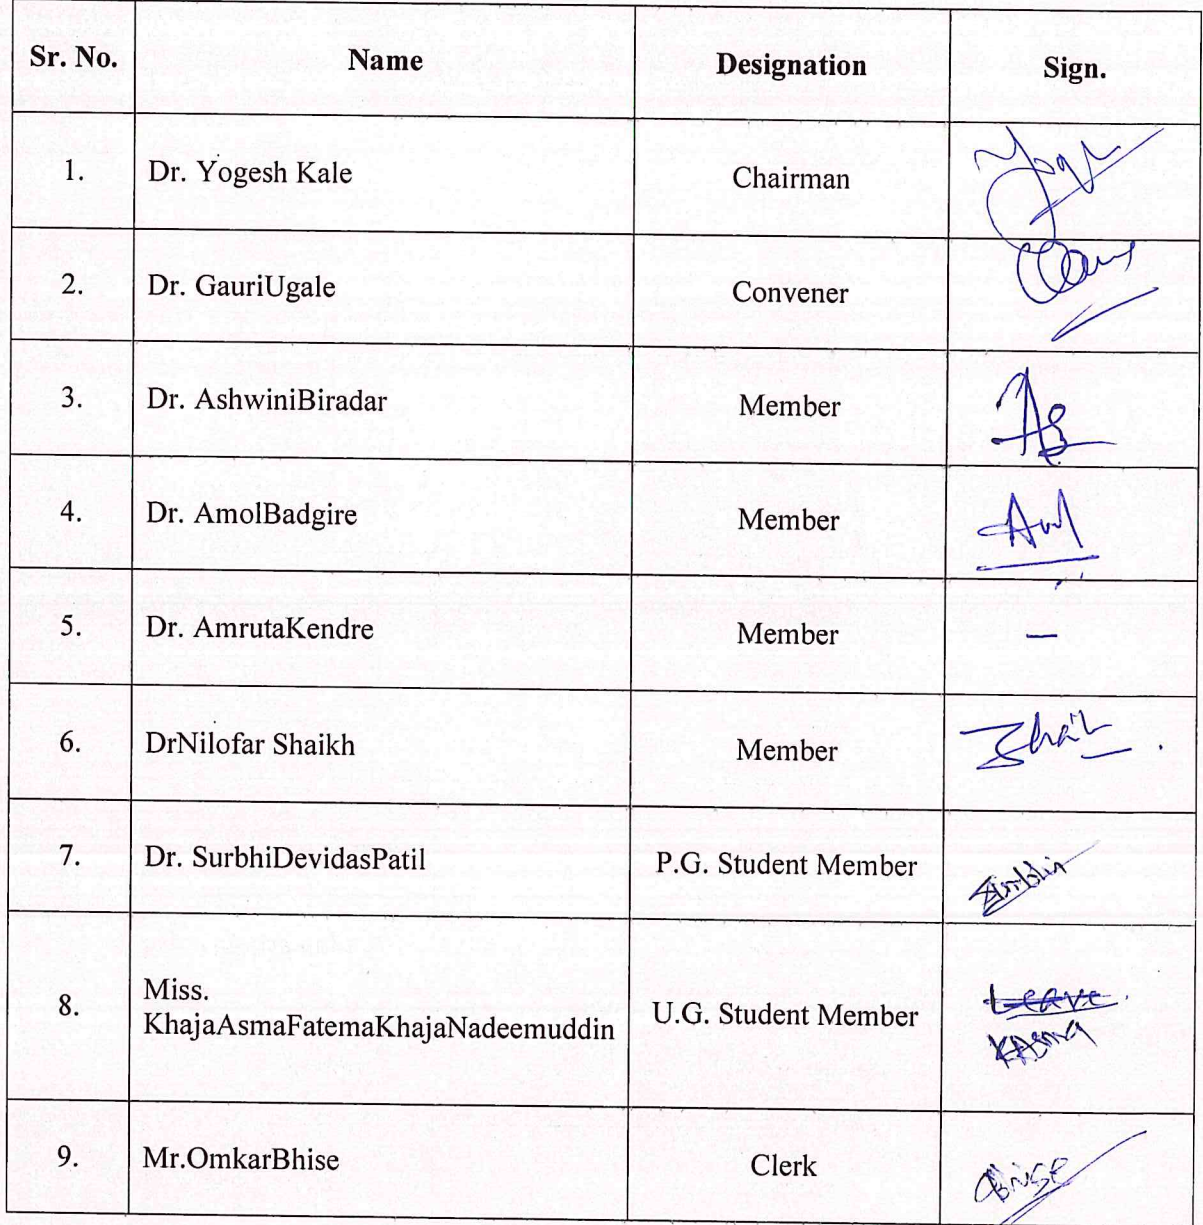 Sr. No. Name Designation Sign.
1. Dr. Yogesh Kale Chairman
2. Dr. GauriUgale Convener
3. Dr. AshwiniBiradar Member
4. Dr. AmolBadgire Member
5. Dr. AmrutaKendre Member –
6. DrNilofar Shaikh Member
7. Dr. SurbhiDevidasPatil P.G. Student Member
8. Miss.
KhajaAsmaFatemaKhajaNadeemuddin U.G. Student Member Leave
KAsma
9. Mr.OmkarBhise Clerk Bhise